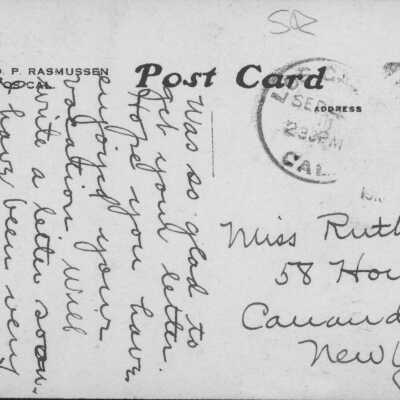 P. RASMUSSEN
OCAL.
Post Card
ADDRESS
SEP
230PM
CAL.
Was so glad to
get your letter.
Hope you have
enjoyed your
vacation will
write a letter soon.
have been very
Miss Ruth
58 How
Canand
New Y